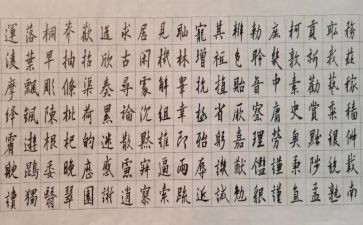 務茲稼穡俶載南
畝我藝黍稷稅熟
貢新勸賞黜陟孟
軻敦素史魚秉直
庶幾中庸勞謙謹
敕聆音察理鑑貌
辨色貽厥嘉猷勉
其祗植省躬譏誡
寵增抗極殆辱近
恥林皋幸即兩疏
見機解組誰逼索
居閑處沉默寂寥
求古尋論散慮逍
遙欣奏累遣慼謝
歡招渠荷的歷園
莽抽條枇杷晚翠
桐早凋陳根委翳
落葉飄颻遊鵾獨
運凌摩絳霄耽讀